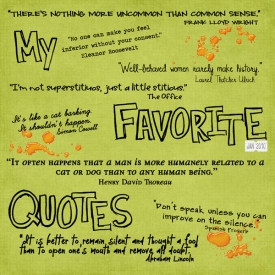 "THERE'S NOTHING MORE UNCOMMON THAN COMMON SENSE."
FRANK LLOYD WRIGHT
MY
"No one can make you feel
inferior without your consent."
Eleanor Roosevelt
"Well-behaved women rarely make history."
Laurel Thatcher Ulrich
"I'm not superstitious, just a little stitious."
The Office
It's like a cat barking.
It shouldn't happen.
Simon Cowell
FAVORITE
JAN 2010
"It often happens that a man is more humanely related to a
cat or dog than to any human being."
Henry David Thoreau
QUOTES
"Don't speak unless you can
improve on the silence."
Spanish Proverb
"It is better to remain silent and thought a fool
than to open one's mouth and remove all doubt.
Abraham Lincoln